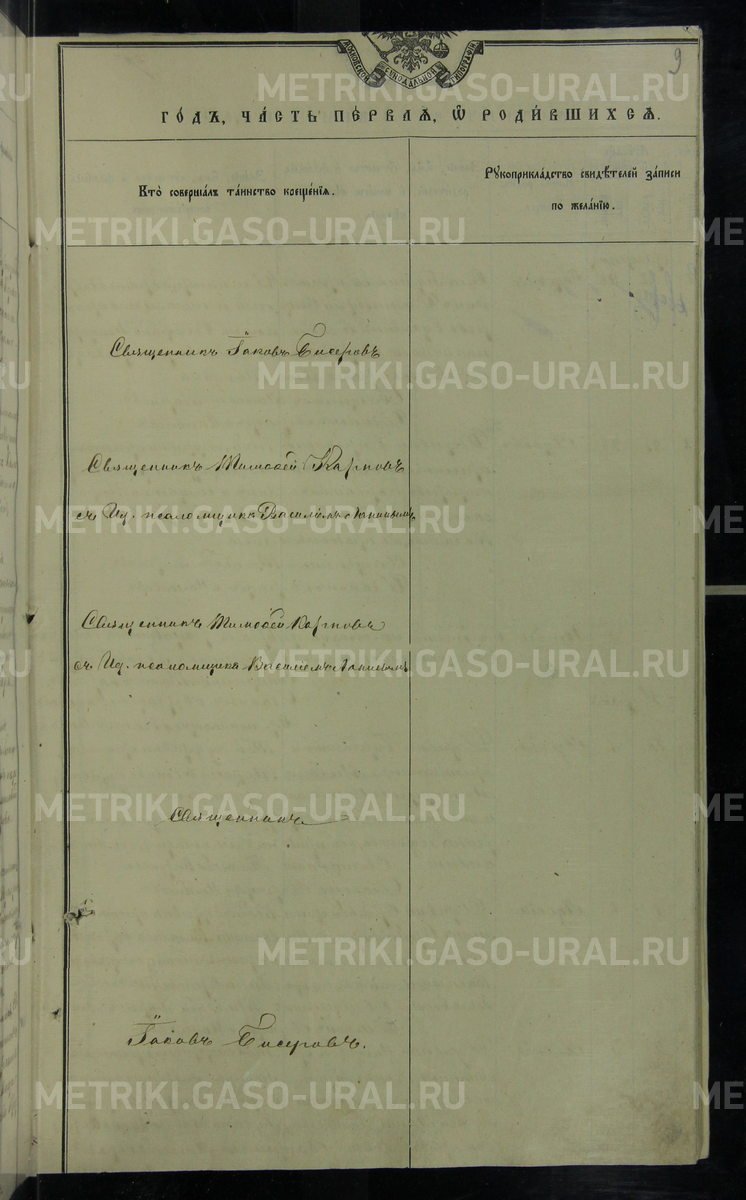 МОСКОВСКОЙ СѴНОДАЛЬНОЙ ТИПОГРАФІИ.
9
ГО́ДЪ, ЧА́СТЬ ПЕ́РВАѦ, Ѽ РОДИ́ВШИХСѦ.
Кто̀ соверша́лъ та́инство креще́нїѧ.
Рꙋкоприкла́дство свидѣ́телей за́писи
по жела́нїю.
Священникъ Іаковъ Бисеровъ
Священникъ Тимоѳей Карповъ
съ И. д. псаломщика Василіемъ
Священникъ Тимоѳей Карповъ
съ И. д. псаломщика Василіемъ
Священникъ
Іаковъ Бисеровъ.
METRIKI.GASO-URAL.RU